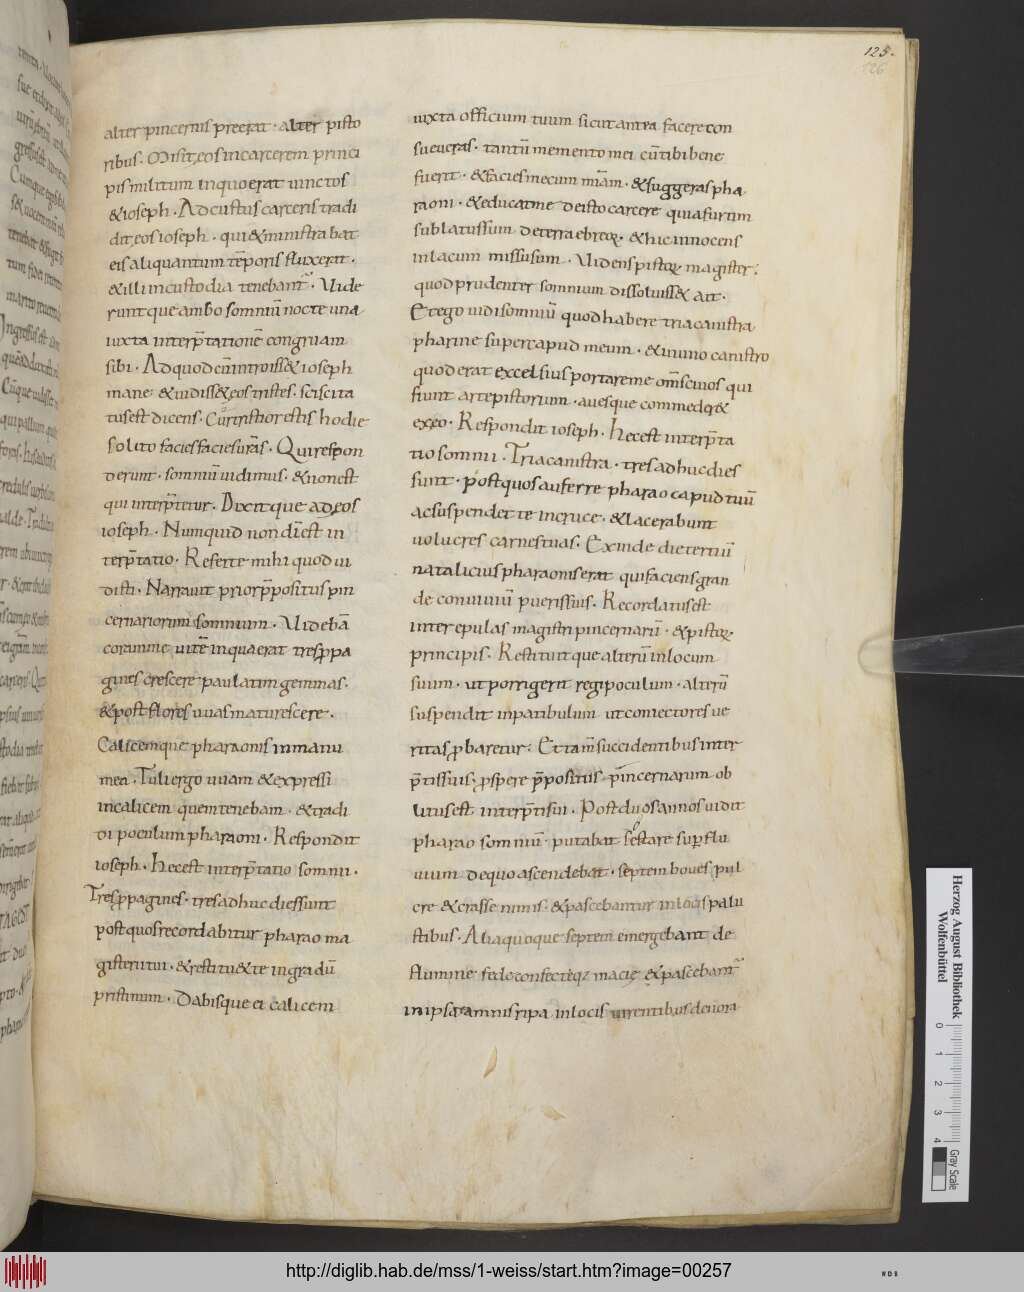 125.
126
alter pincernis preerat · alter pisto
ribus · Misit eos in carcerem princi
pis militum in quo erat uinctos
& ioseph · Ad custus carceris tradi
dit eos ioseph · qui & ministrabat
eis aliquantum tēporis fluxerat ·
& illi in custodia tenebant̄ · Uide
runt que ambo somniū nocte una
iuxta interp̄tationē congruam
sibi · Ad quod cū introiss& ioseph
mane · & uidiss& eos tristes · sciscita
tus est dicens · Cur tristior estis hodie
solito facies facies urās · Qui respon
derunt · somniū uidimus · & non est
qui interp̄tetur · Dixit que ad eos
ioseph · Numquid non dī est in
terp̄tatio · Referte mihi quod ui
distis · Narrauit prior p̄positus pin
cernariorum somnium · Uidebā
coram me uitē in qua erat tres ꝓpa
gines crescere paulatim gemmas ·
& post flores uuas maturescere ·
Calicemque pharaonis in manu
mea · Tuli ergo uuam & expressi
in calicem quem tenebam · & tradi
di poculum pharaoni · Respondit
ioseph · hec est interp̄tatio somnii ·
Tres ꝓpagines · tres adhuc dies sunt
post quos recordabitur pharao ma
gisterii tui · & restitu& te in gradū
pristinum · Dabisque ei calicem
iuxta officium tuum sicut antea facere con
sueueras · tantū memento mei cū tibi bene
fuerit · & facies mecum mīam · & suggeras pha
raoni · & educat me de isto carcere quia furtim
sublatus sum de terra ebreoꝝ · & hic innocens
in lacum missus sum · Uidens pistoꝝ magister
quod prudenter somnium dissoluiss& ait ·
Et ego uidi somniū quod habere tria canistra
pharine super capud meum · & in uno canistro
quod erat excelsius portare me om̄s ciuos qui
fiunt arte pistorum · auesque commeder&
ex eo · Respondit ioseph · hec est interp̄ta
tio somnii · Tria canistra · tres adhuc dies
sunt · post quos auferre pharao capud tuū
ac suspendet te in cruce · & lacerabunt
uolucres carnes tuas · Exinde die tertiū
natalicius pharaonis erat qui faciens gran
de conuiuiū pueris suis · Recordatus est
inter epulas magistri pincernarū · & pistoꝝ
principis · Restituit que alterū in locum
suum · ut porrigerit regi poculum · alterū
suspendit in patibulum ut coniectores ue
ritas ꝓbaretur : Et tam̄ succidentibus inter
p̄tis suis · ꝓspere p̄positus pincernarum ob
litus est interp̄ti sui · Post duos annos uidit
pharao somniū · putabat se stare sup̄ flu
uium de quo ascendebat · septem boues pul
cre & crasse nimis · & pascebantur in locis palu
stibus · Alia quoque septem emergebant de
flumine fede confecteqꝫ macie & pascebant̄
in ipsa amnis ripa in locis uirentibus deuora
Herzog August Bibliothek
Wolfenbüttel
0 1 2 3 4
Gray Scale
http://diglib.hab.de/mss/1-weiss/start.htm?image=00257